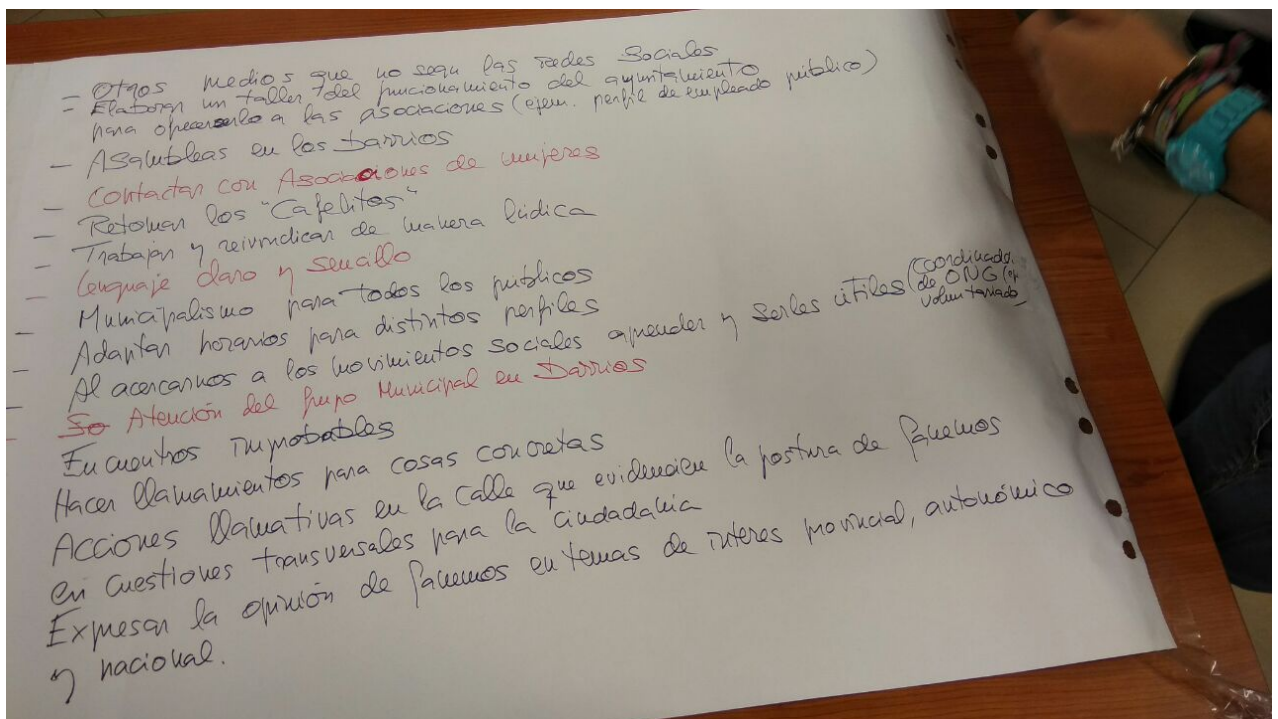 - Otros medios que no sean las redes sociales
- Elaborar un taller del funcionamiento del ayuntamiento
para ofrecerselo a las asociaciones (ejem. perfil de empleado público)
- Asambleas en los barrios
- Contactar con Asociaciones de mujeres
- Retomar los "Cafelitos"
- Trabajar y reivindicar de manera lúdica
- Lenguaje claro y sencillo
- Municipalismo para todos los públicos
- Adaptar horarios para distintos perfiles
- Al acercarnos a los movimientos sociales aprender y serles útiles (coordinado.
de ONG
voluntariado
- So Atención del Grupo Municipal en Barrios
Encuentros improbables
Hacer llamamientos para cosas concretas
Acciones llamativas en la calle que evidencien la postura de Ganemos
en cuestiones transversales para la ciudadania
Expresar la opinión de Ganemos en temas de interes provincial, autonómico
y nacional.